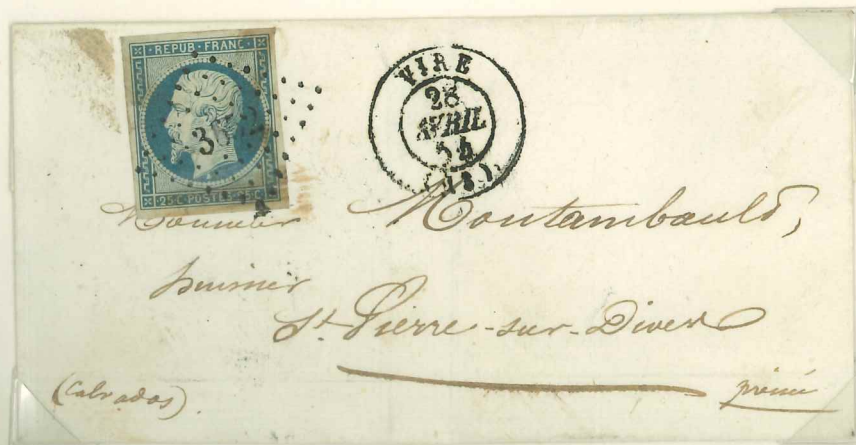 REPUB·FRANC·
25·C·POSTES·25·C
VIRE
28
AVRIL
54
(13)
Monsieur Montambault,
huissier
St Pierre-sur-Dives
(Calvados)